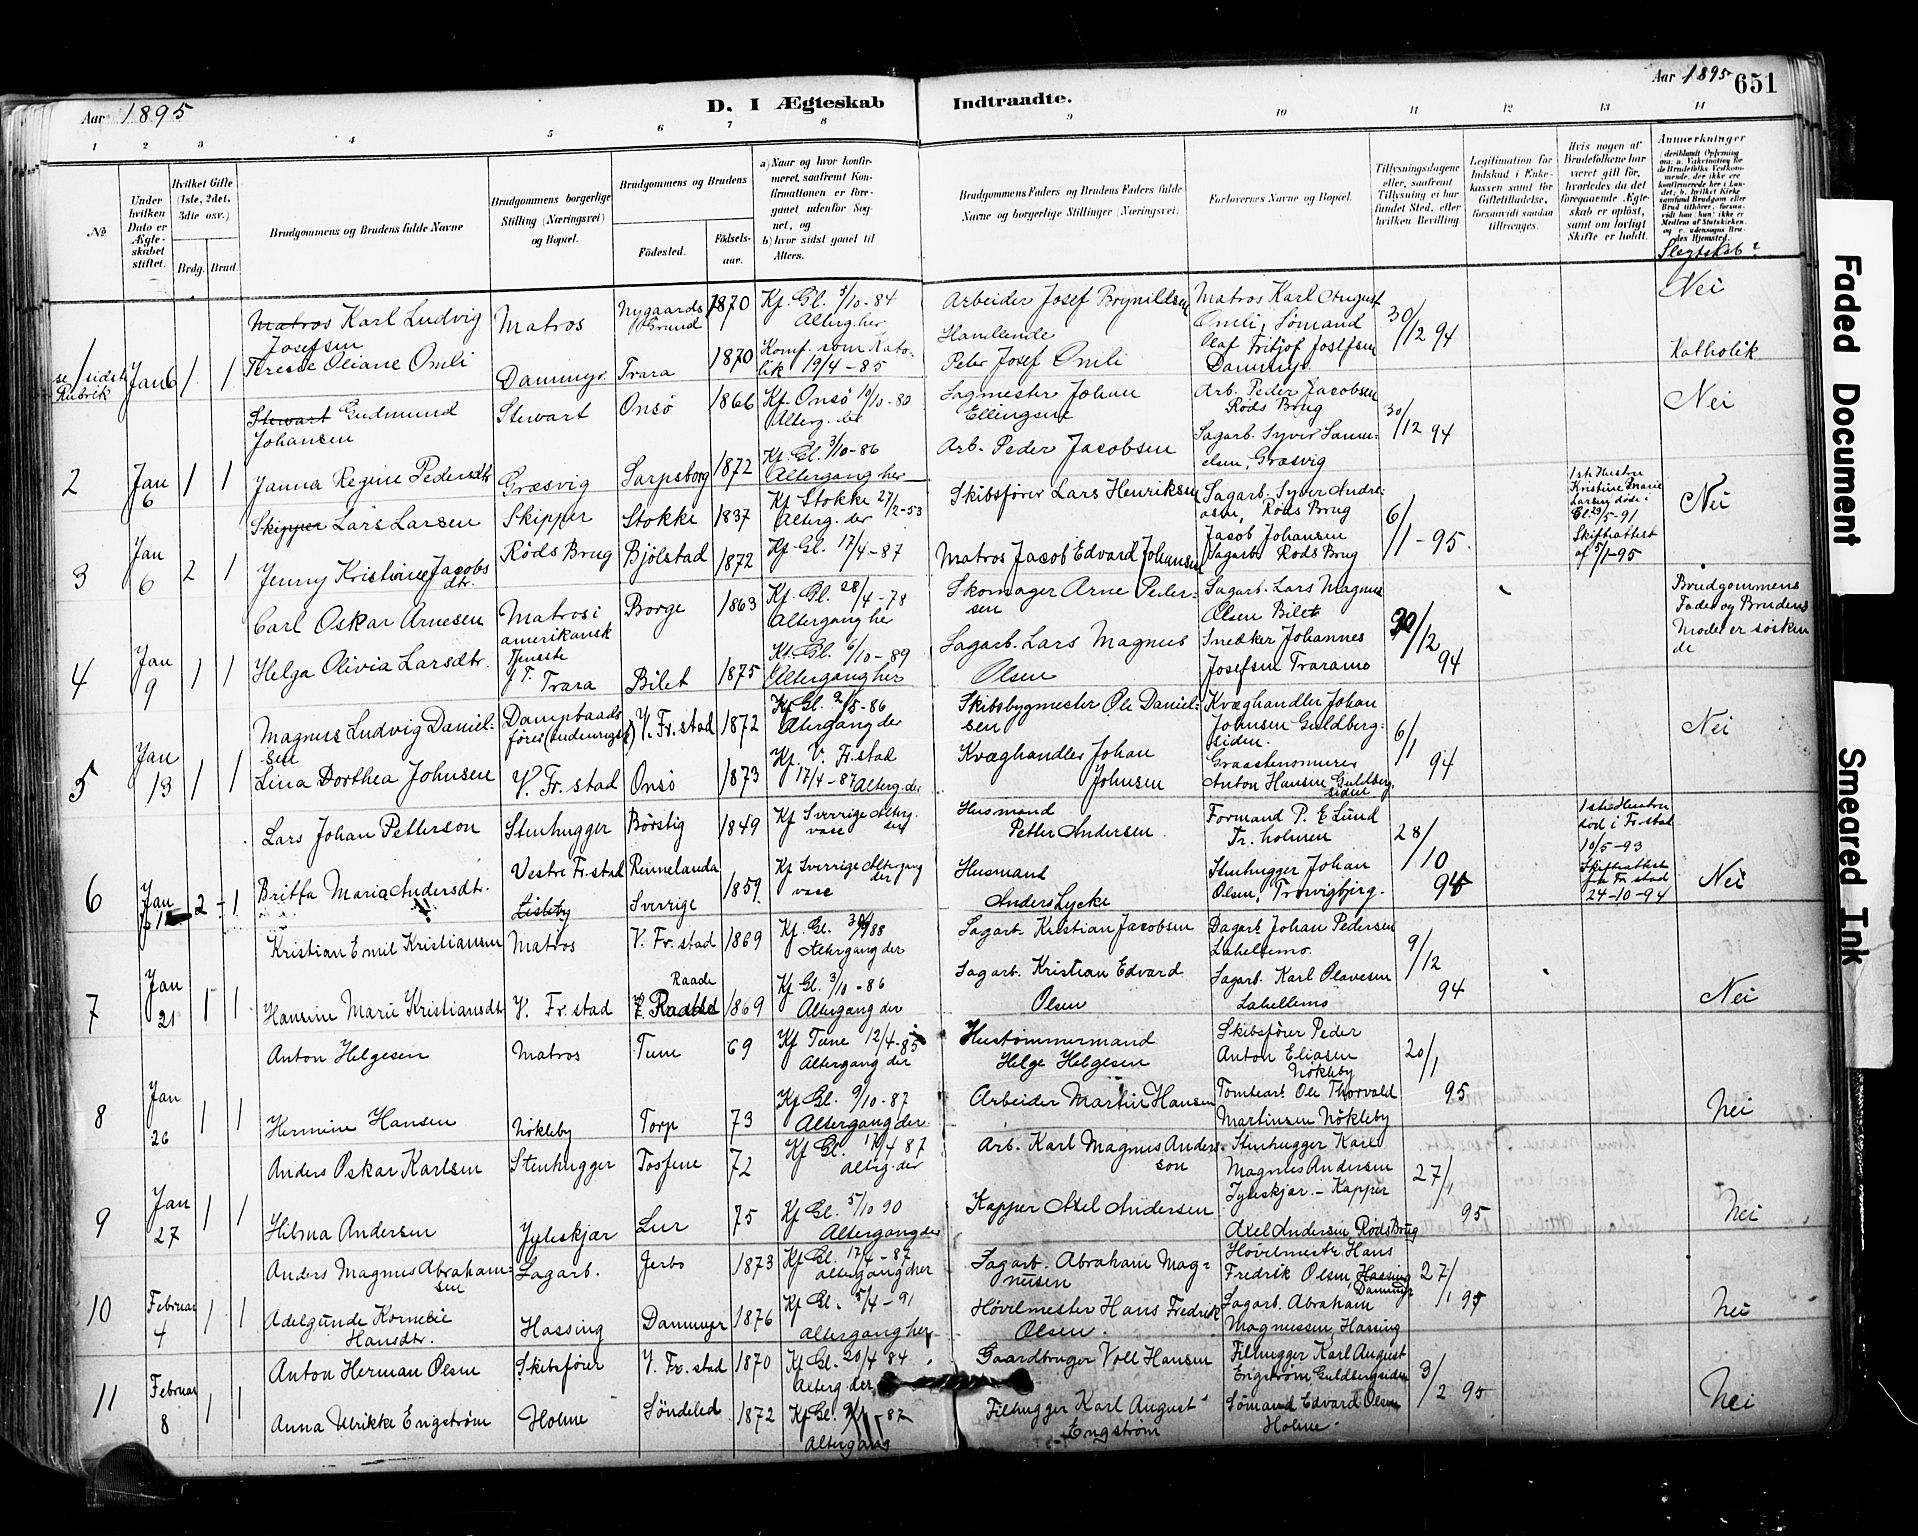 Aar 1895
D. I Ægteskab Indtraadte.
Aar 1895 651
1 2 3 4 5 6 7 8 9 10 11 12 13 14
No
Under hvilken Dato er Ægteskabet stiftet.
Hvilket Gifte (1ste, 2det, 3die osv.)
Brdg. Brud.
Brudgommens og Brudens fulde Navne
Brudgommens borgerlige Stilling (Næringsvei) og Bopæl.
Brudgommens og Brudens
Fødested. Fødselsaar.
a) Naar og hvor konfirmeret, saafremt Konfirmationen er foregaaet udenfor Sognet, og
b) hvor sidst gaaet til Alters.
Brudgommens Faders og Brudens Faders fulde Navne og borgerlige Stillinger (Næringsvei)
Forlovernes Navne og Bopæl.
Tillysningsdagene eller, saafremt Tillysning ei har fundet Sted, efter hvilken Bevilling
Legitimation for Indskud i Enkekassen samt for Giftetilladelse, forsaavidt saadan tiltrænges.
Hvis nogen af Brudefolkene har været gift før, hvorledes da det foregaaende Ægteskab er opløst, samt om lovligt Skifte er holdt.
Anmærkninger
Slegtskab?
1 se sidste Rubrik Jan 6 1 1
Matros Karl Ludvig Josefsen Matros Nygaards Grund 1870 Kf. Gl. 5/10-84 Alterg. her Arbeider Josef Brynildsen Matros Karl August Omli, Sömand 30/12 94 Nei
Terese Oliane Omli Dammyr Trara 1870 Konf. som Katolik 19/4-85 Handlende Peter Josef Omli Olaf Fritjof Josefsen Dammyr Katholik
2 Jan 6 1 1
Stewart Gudmund Johansen Stewart Onsö 1866 Kf. Onsö 10/10-80 Alterg. der Sagmester Johan Ellingsen Arb. Peder Jacobsen Röds Brug 30/12 94 Nei
Janna Regine Pedersdtr Græsvig Sarpsborg 1872 Kf. Gl. 3/10-86 Altergang her Arb. Peder Jacobsen Sagarb. Syver Samuelsen, Græsvig
3 Jan 6 2 1
Skipper Lars Larsen Skipper Stokke 1837 Kf Stokke 27/2-53 Alterg. der Skibsförer Lars Henriksen Sagarb. Syver Andreasen, Röds Brug 6/1-95. 1ste Hustru Kristine Marie Larsen döde i Gl. 29/5-91 Skifteattest af 5/1-95 Nei
Jenny Kristine Jacobsdtr. Röds Brug Bjölstad 1872 Kf Gl. 17/4-87 Matros Jacob Edvard Johansen Jacob Johansen Sagarb. Röds Brug
4 Jan 9 1 1
Carl Oskar Arnesen Matros i amerikansk Tjeneste Borge 1863 Kf. Gl. 28/4-78 Altergang her Skomager Arne Pedersen Sagarb. Lars Magnus Olsen Bilet 30/12 94 Brudgommens Fader og Brudens Moder er söskende
Helga Olivia Larsdtr. Trara Bilet 1875 Kf. Gl. 6/10-89 Altergang her Sagarb. Lars Magnus Olsen Snedker Johannes Josefsen Traramo
5 Jan 13 1 1
Magnus Ludvig Danielsen Dampbaadsförer (indenrigsk) V. Fr. stad 1872 Kf. Gl. 2/5-86 Altergang der Skibsbygmester Ole Danielsen Kvæghandler Johan Johnsen Guldbergsiden. 6/1 94 Nei
Lina Dorthea Johnsen V. Fr. stad Onsö 1873 Kf. V. Fr. stad 17/4-87 Alterg. der Kvæghandler Johan Johnsen Graastenomurer Anton Hansen Guldbergsiden
6 Jan 2 - 1
Lars Johan Petterson Stenhugger Börstig 1849 Kf Sverrige Husmand Petter Andersen. Formand P. E Lund Tr. holmen 28/10 94 1ste Hustru död i Fr. stad 10/5-93 Skifteattest fra Fr. stad 24-10-94 Nei
Britta Maria Andersdtr. Vestre Fr. stad Lisleby Rennelanda Sverrige 1859 Kf Sverrige Altergang der Husmand Anders Lycke Stenhugger Johan Olsen, Trosvigbjerg.
7 Jan 21 1 1
Kristian Emil Kristiansen Matros V. Fr. stad 1869 Kf. Gl. Altergang der Sagarb. Kristian Jacobsen Dagarb. Johan Pedersen Lahellemo. 9/12 94 Nei
Hansine Marie Kristiansdtr V. Fr. stad Raade 1869 Kf Gl. 3/10-86 Altergang der Sagarb. Kristian Edvard Olsen Sagarb. Karl Olavesen Lahellemo
8 Jan 26 1 1
Anton Helgesen Matros Tune 69 Kf Tune 12/4-85 Altergang der Hustömmermand Helge Helgesen Skibsförer Peder Anton Eliasen Nökleby 20/1 95 Nei
Hermine Hansen Nökleby Torp 73 Kf Gl. 9/10-87 Altergang der Arbeider Martin Hansen Tomtearb. Ole Thorvald Martinsen Nökleby
9 Jan 27 1 1
Anders Oskar Karlsen Stenhugger Tosfene 72 Kf Gl. 17/4 87 Alterg. der Arb. Karl Magnus Anderson Stenhugger Karl Magnus Andersen Jyleskjær. - Kapper 27/1 95 Nei
Hilma Andersen Jyleskjær Lur 75 Kf Gl. 5/10 90 Altergang der Kapper Axel Andersen Axel Andersen, Röds Brug
10 Februar 4 1 1
Anders Magnus Abrahamsen Sagarb. Jerbo 1873 Kf Gl. 17/4-87 altergang her Sagarb. Abraham Magnusen Hövlmester Hans Fredrik Olsen, Hassing Dammyr 27/1 95 Nei
Adelgunde Kornelie Hansdtr. Hassing Dammyr 1876 Kf Gl. 5/4-91 altergang her. Hövlmester Hans Fredrik Olsen. Sagarb. Abraham Magnussen, Hassing
11 Februar 8 1 1
Anton Herman Olsen Skibsförer V. Fr. stad 1870 Kf Gl. 20/4 84 Alterg. der Gaardbruger Voll Hansen Filhugger Karl August Engström, Guldbergsiden 3/2 95 Nei
Anna Ulrikke Engström Holme Söndeled 1872 Kf Gl. -87 Altergang Filhugger Karl August Engström Sömand Edvard Olsen Holme.
Faded Document
Smeared Ink